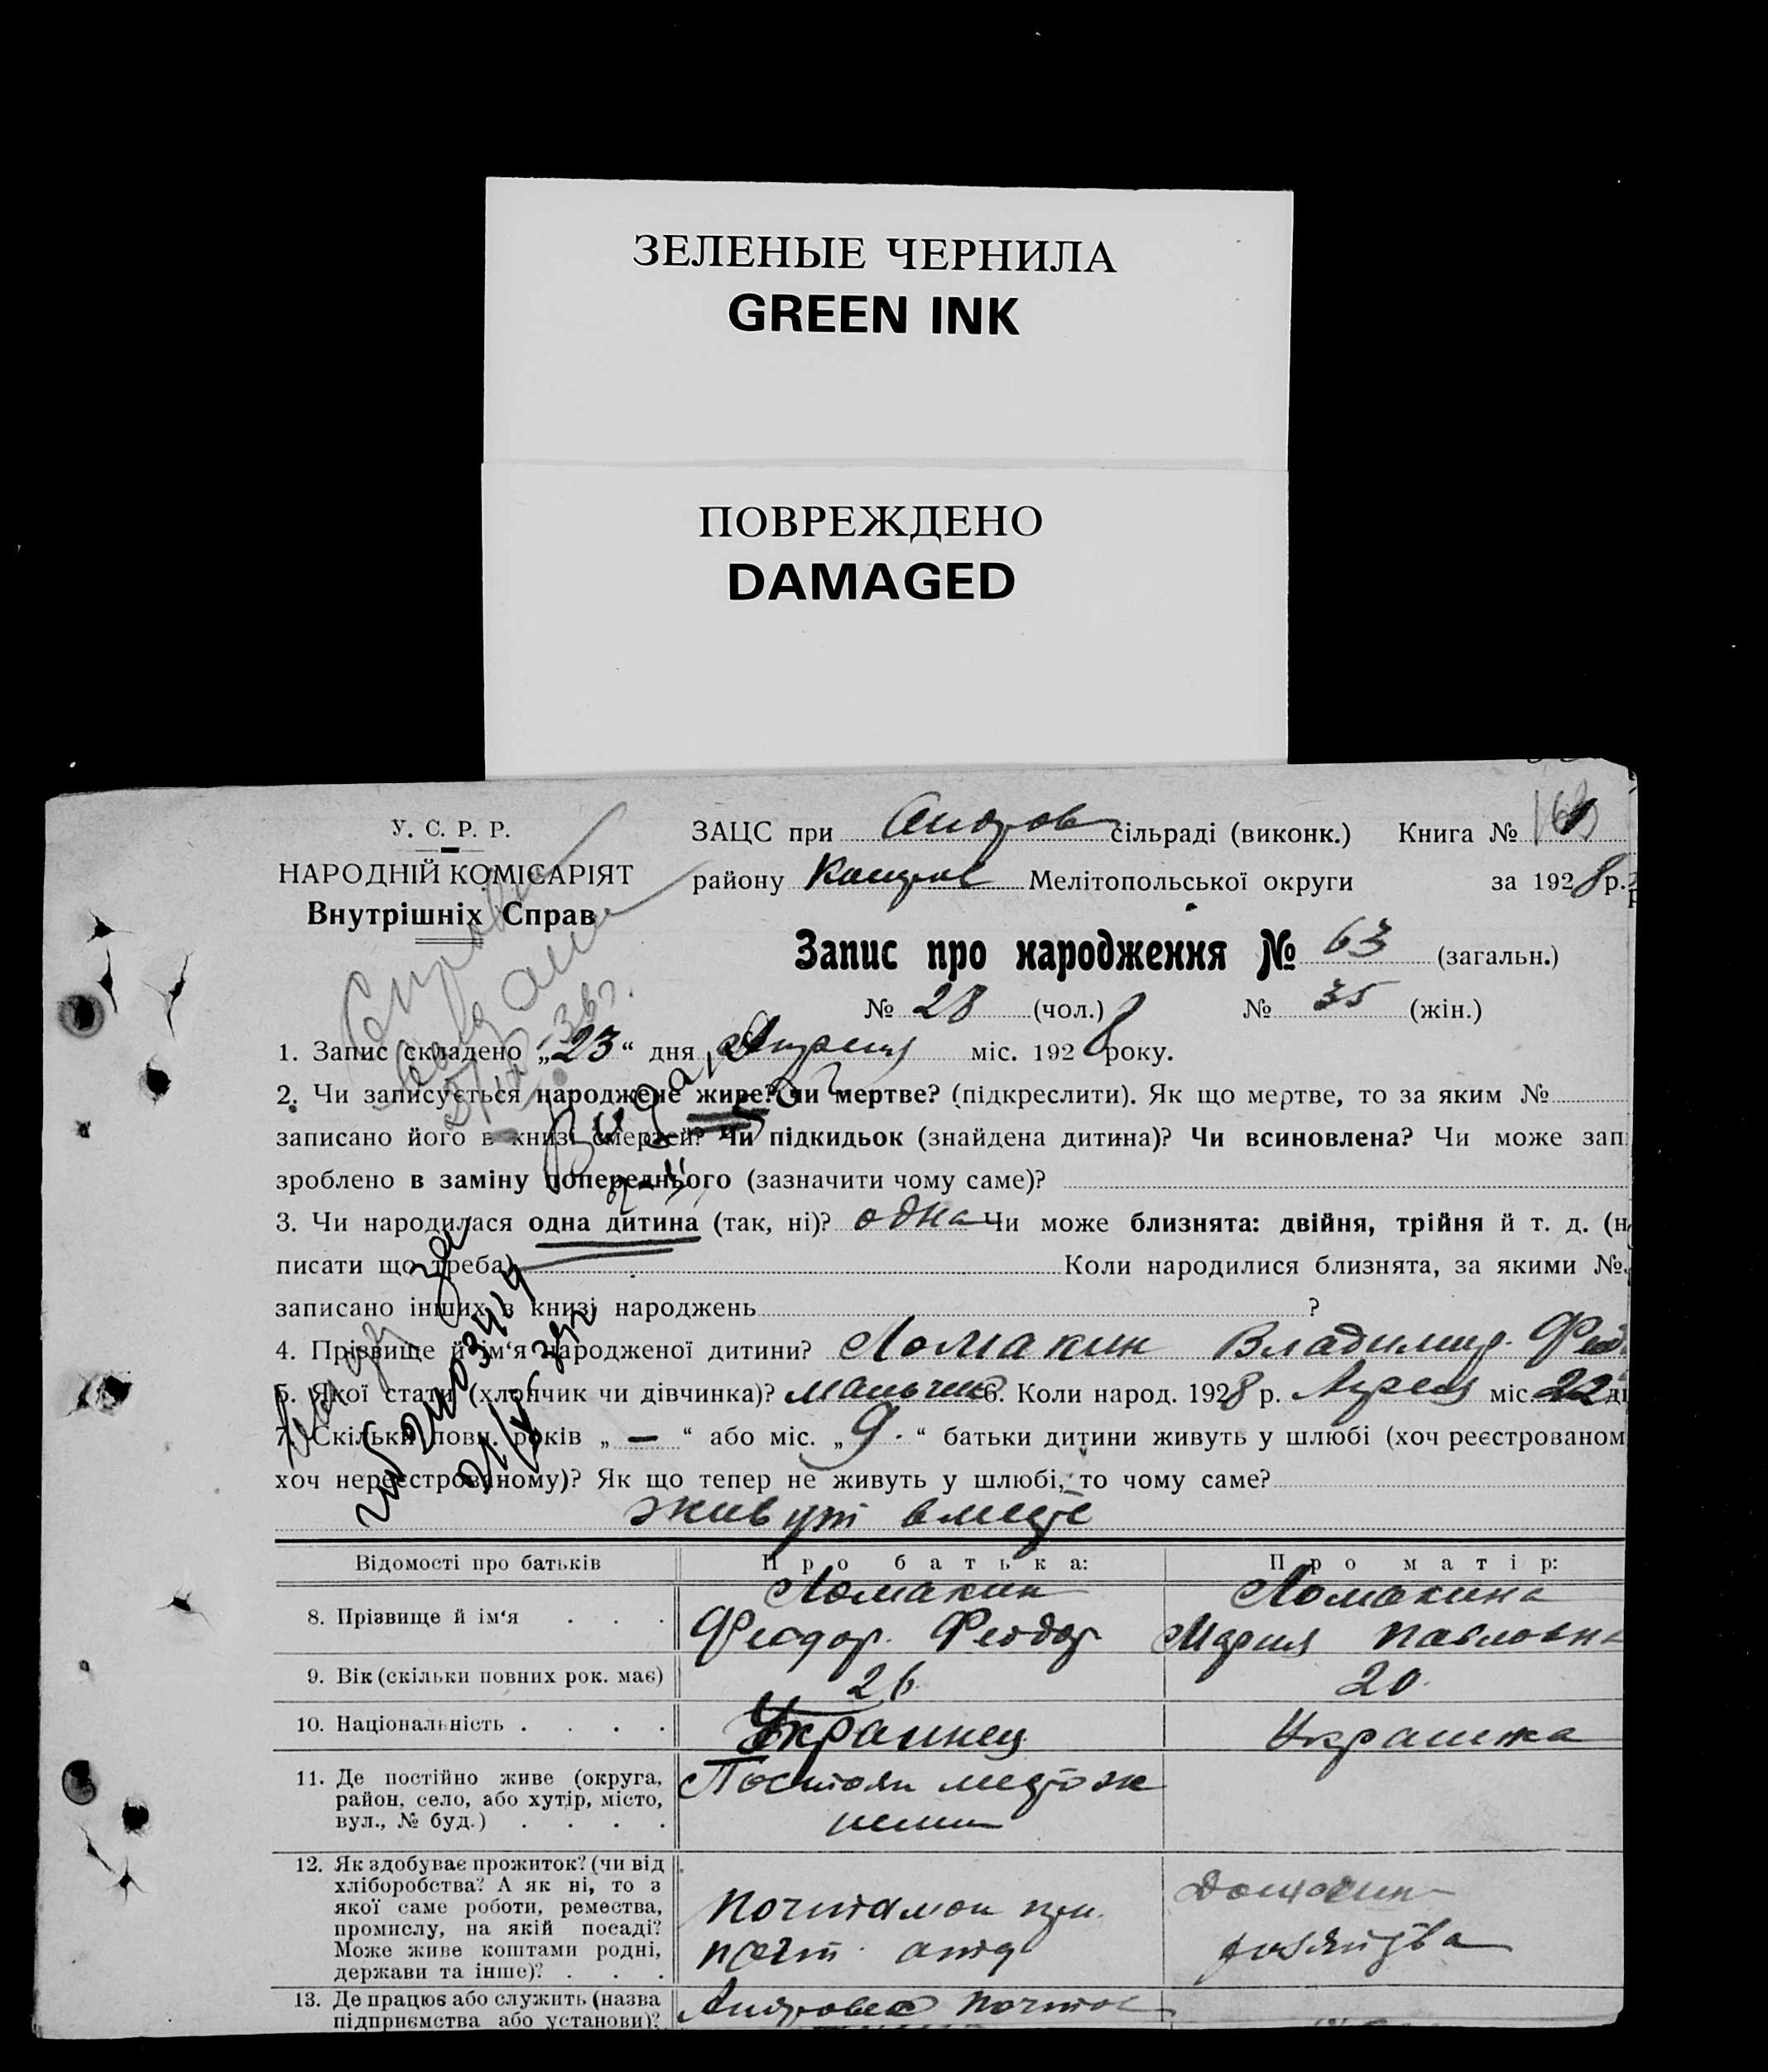 ЗЕЛЕНЫЕ ЧЕРНИЛА
GREEN INK
ПОВРЕЖДЕНО
DAMAGED
У. С. Р. Р.
НАРОДНІЙ КОМІСАРІЯТ
Внутрішніх Справ
ЗАЦС при Андров сільраді (виконк.) Книга №
району Мелітопольської округи за 1928 р.
Запис про народження № 63 (загальн.)
№ 28 (чол.) № 35 (жін.)
1. Запис складено „23“ дня Апреля міс. 1928 року.
2. Чи записується народжене живе? чи мертве? (підкреслити). Як що мертве, то за яким №
записано його в книзі смертей? Чи підкидьок (знайдена дитина)? Чи всиновлена? Чи може зап
зроблено в заміну попереднього (зазначити чому саме)?
3. Чи народилася одна дитина (так, ні)? одна Чи може близнята: двійня, трійня й т. д. (н
писати що треба) Коли народилися близнята, за якими №
записано інших в книзі народжень ?
4. Прізвище й ім‘я народженої дитини? Ломакин Владимир Фед
5. Якої стати (хлопчик чи дівчинка)? мальчик 6. Коли народ. 1928 р. Апреля міс. 22 д
7. Скільки повн. років „—“ або міс. „9.“ батьки дитини живуть у шлюбі (хоч реєстрованом
хоч нереєстрованому)? Як що тепер не живуть у шлюбі, то чому саме?
живут вместе
Відомості про батьків Про батька: Про матір:
8. Прізвище й ім‘я Ломакин Феодор Феодор Ломакина Мария Павловна
9. Вік (скільки повних рок. має) 26 20
10. Національність Украинец Украинка
11. Де постійно живе (округа,
район, село, або хутір, місто,
вул., № буд.)
12. Як здобуває прожиток? (чи від
хліборобства? А як ні, то з
якої саме роботи, ремества,
промислу, на якій посаді?
Може живе коштами родні,
держави та інше)?
Почтамон при
почт. отд
13. Де працює або служить (назва
підприємства або установи)?